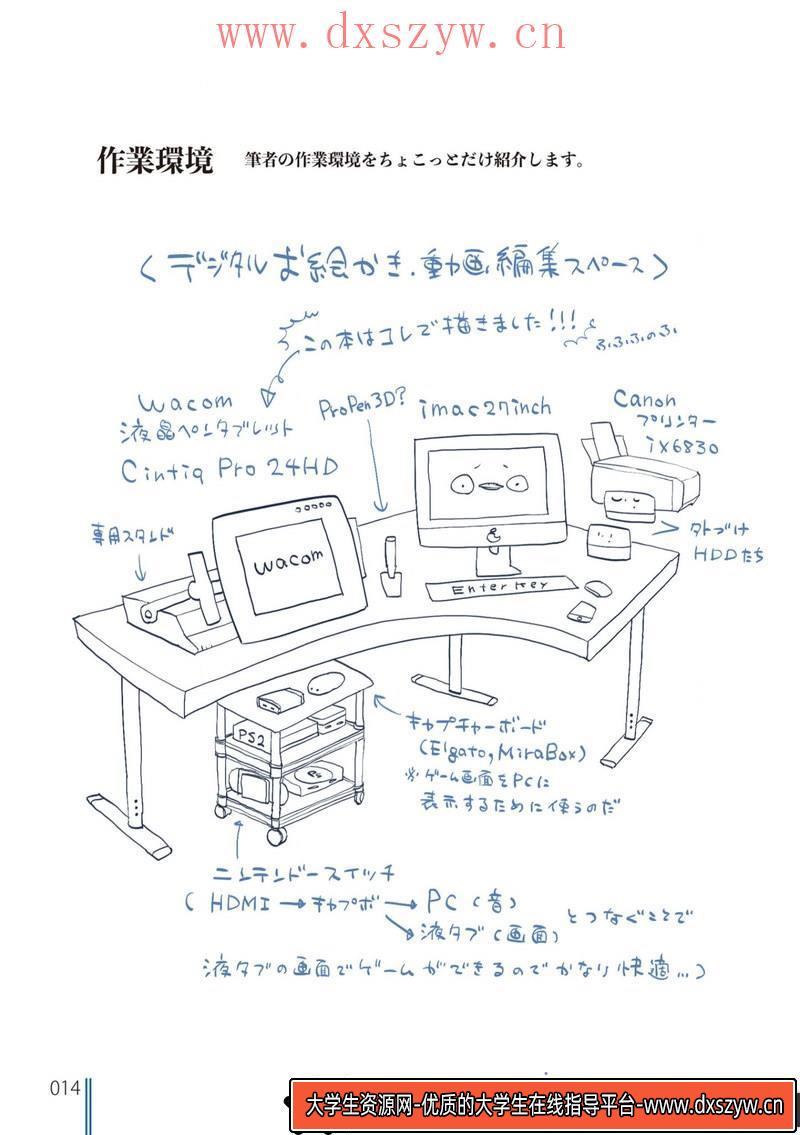 www.dxszyw.cn
作業環境 筆者の作業環境をちょこっとだけ紹介します。
〈デジタルお絵かき.動画編集スペース〉
この本はコレで描きました!!!
ふふふのふ
wacom
液晶ペンタブレット
Cintiq Pro 24HD
ProPen3D?
imac27inch
Canon
プリンター
ix6830
専用スタンド
外づけ
HDDたち
wacom
Enter Key
PS2
キャプチャーボード
(Elgato,MiraBox)
※ゲーム画面をPCに
表示するために使うのだ
ニンテンドースイッチ
(HDMI→キャプボ→PC(音)
→液タブ(画面)
とつなぐことで
液タブの画面でゲームができるのでかなり快適...)
014
大学生资源网-优质的大学生在线指导平台-www.dxszyw.cn